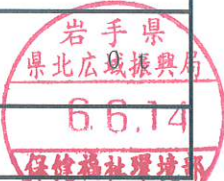 岩手県
県北広域振興局
0 1
6.6.14
保健福祉環境部